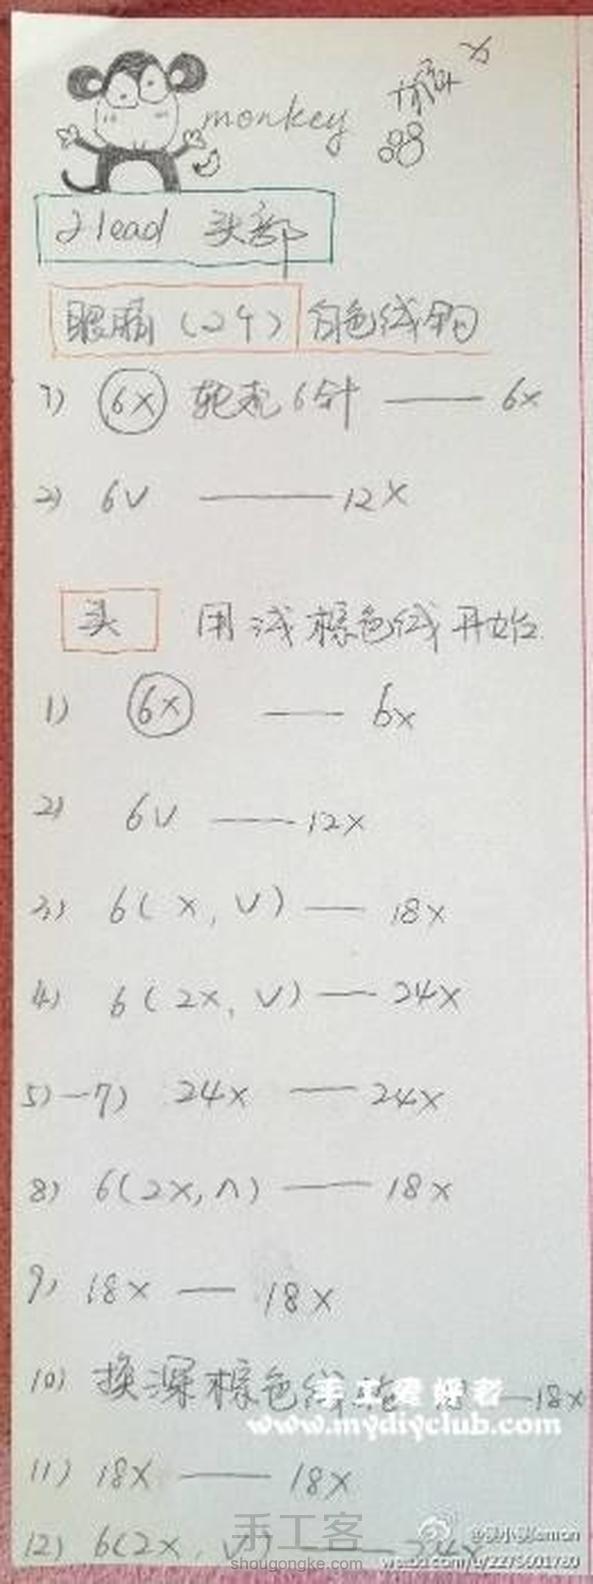 monkey
Head 头部
眼睛(2个) 白色线钩
1) 6X 轮起6针 —— 6X
2) 6V —— 12X
头 用浅棕色线开始
1) 6X —— 6X
2) 6V —— 12X
3) 6(X, V) — 18X
4) 6(2X, V) — 24X
5)—7) 24X — 24X
8) 6(2X, ∧) — 18X
9) 18X — 18X
10) 换深棕色线 —18X
手工爱好者
www.mydiyclub.com
11) 18X — 18X
12) 6(2X, V) — 24X
手工客
shougongke.com